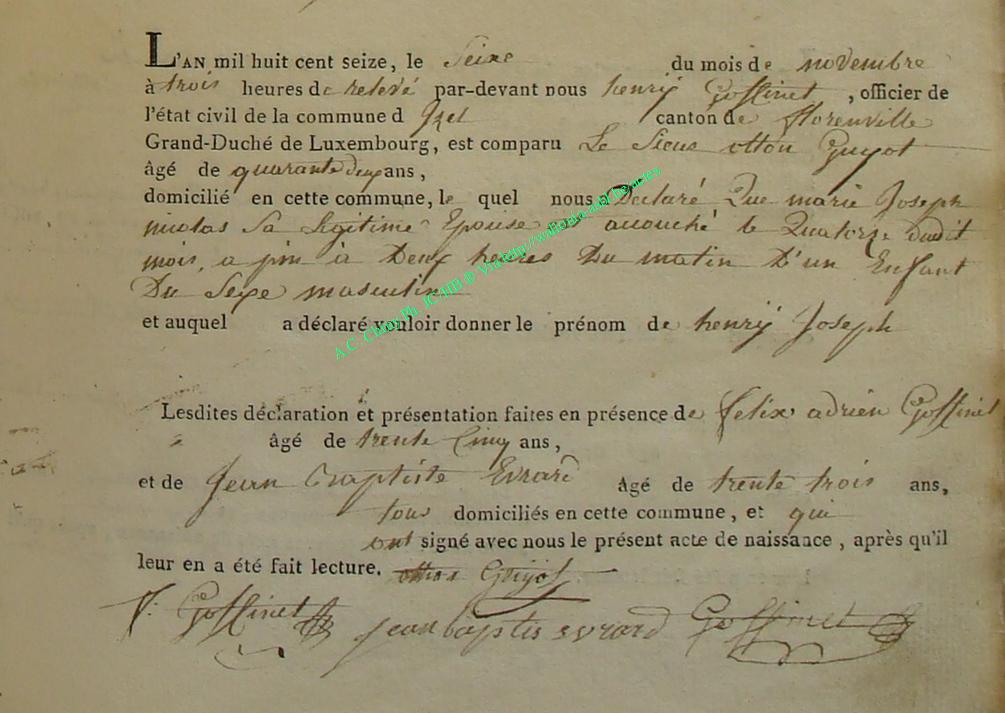 L'AN mil huit cent seize, le Seize du mois de novembre
à trois heures de relevé par-devant nous henrij Goffinet, officier de
l'état civil de la commune d Izel canton de florenville
Grand-Duché de Luxembourg, est comparu Le Sieur otton Guyot
âgé de quarante deux ans,
domicilié en cette commune, le quel nous a Déclaré Que marie Joseph
Sa Légitime Epouse est accouché le Quatorze dudit
mois, à Deux heures Du matin D'un Enfant
Du Sexe masculin
et auquel a déclaré vouloir donner le prénom de henrij Joseph
Lesdites déclaration et présentation faites en présence de felix adrien Goffinet
âgé de trente Cinq ans,
et de Jean Baptiste Evrard Agé de trente trois ans,
tous domiciliés en cette commune, et qui
ont signé avec nous le présent acte de naissance, après qu'il
leur en a été fait lecture. otton Guyot
f. Goffinet jean baptis evrard Goffinet